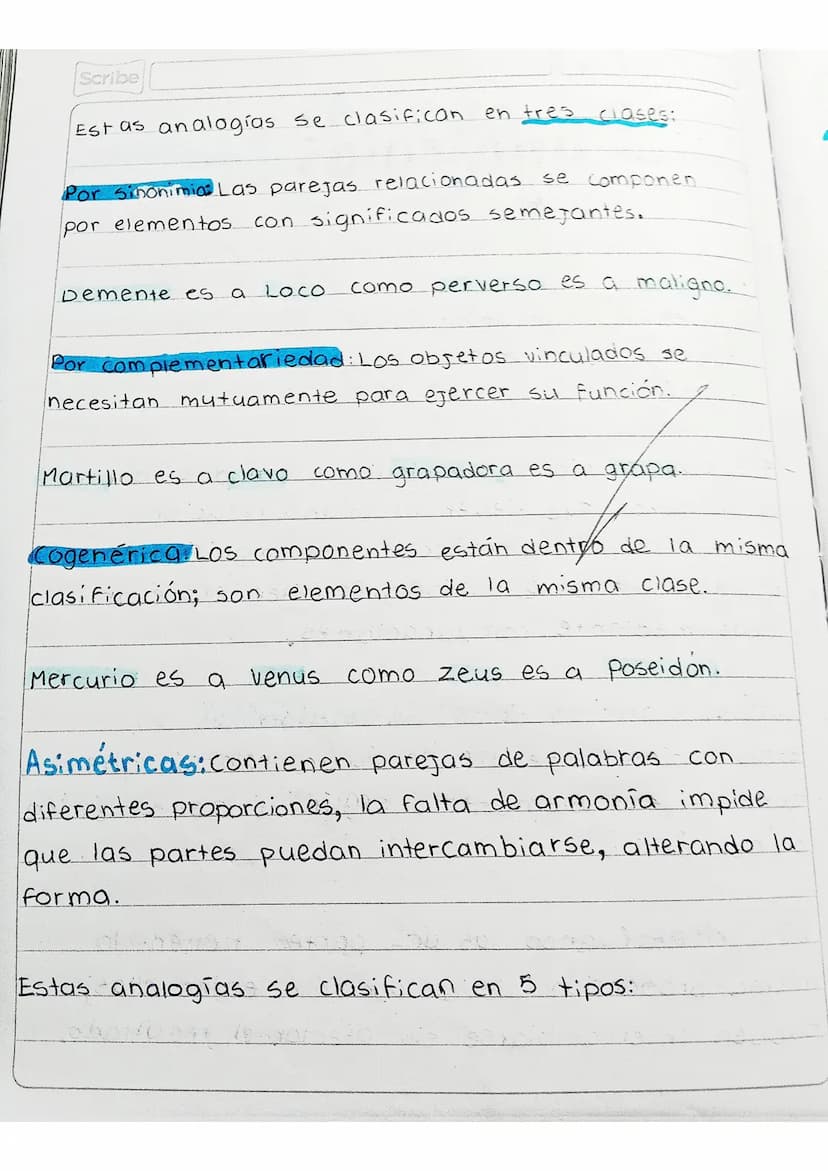 Scribe
Estas analogías se clasifican en tres clases:
Por sinonimia: Las parejas relacionadas se componen
por elementos con significados semejantes.
Demente es a Loco como perverso es a maligno.
Por complementariedad: Los objetos vinculados se
necesitan mutuamente para ejercer su función.
Martillo es a clavo como grapadora es a grapa.
Cogenérica: Los componentes están dentro de la misma
clasificación; son elementos de la misma clase.
Mercurio es a Venus como Zeus es a Poseidón.
Asimétricas: contienen parejas de palabras con
diferentes proporciones, la falta de armonía impide
que las partes puedan intercambiarse, alterando la
forma.
Estas analogías se clasifican en 5 tipos: